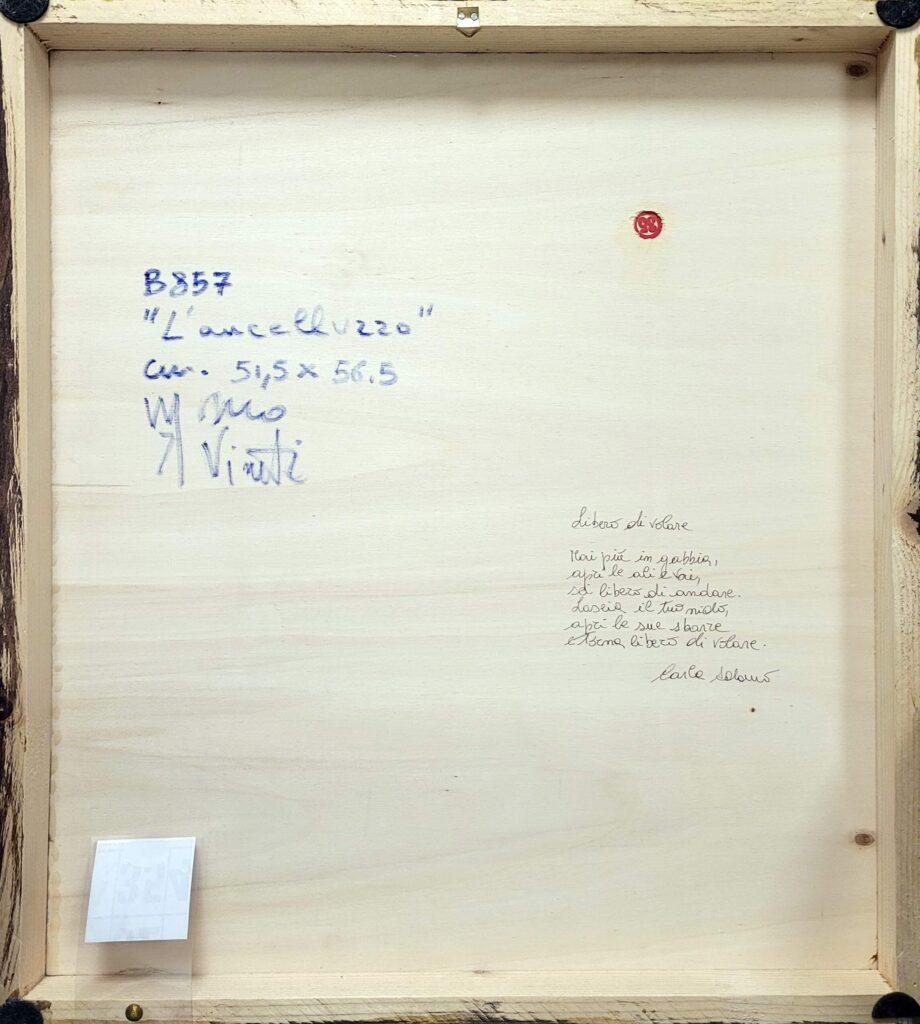 B857
"L'aucelluzzo"
cm. 51,5 x 56.5
Libero di volare
Mai più in gabbia,
apri le ali e vai,
sei libero di andare.
Lascia il tuo nido,
apri le sue sbarre
e torna libero di volare.
Carla